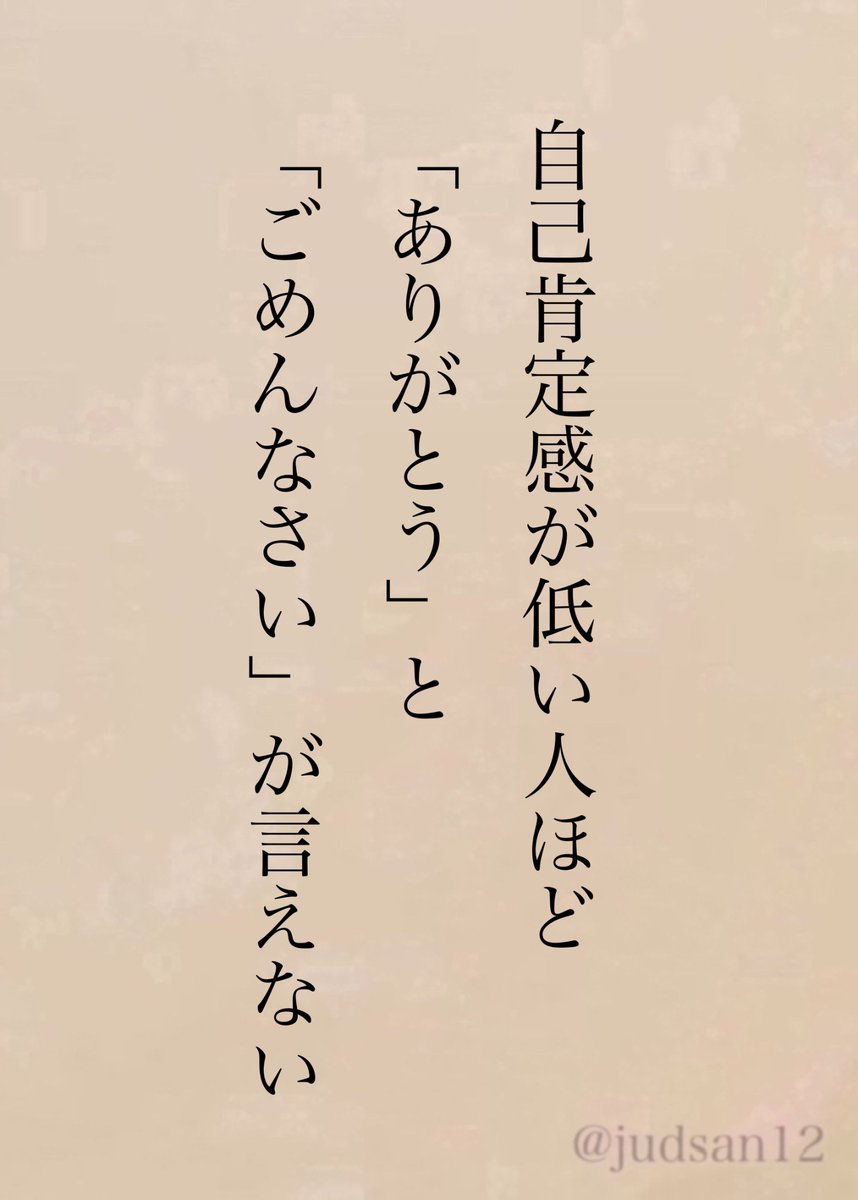 自己肯定感が低い人ほど
「ありがとう」と
「ごめんなさい」が言えない
@judsan12